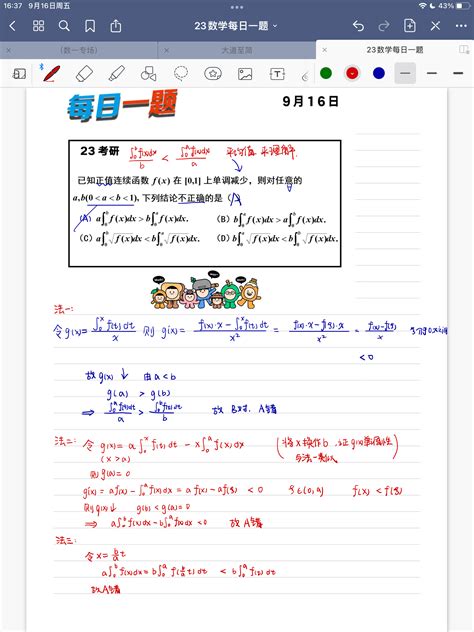 16:37 9月16日周五
43%
23数学每日一题
(数一专场)
大道至简
23数学每日一题
每日一题
9月16日
23 考研 ∫₀ᵇf(x)dx/b < ∫₀ᵃf(x)dx/a 平均值 来理解.
已知正值连续函数 f(x) 在 [0,1] 上单调减少，则对任意的
a,b(0<a<b<1), 下列结论不正确的是 (A)
(A) a∫₀ᵇf(x)dx>b∫₀ᵃf(x)dx. (B) b∫₀ᵃf(x)dx>a∫₀ᵇf(x)dx.
(C) a∫₀ᵇ√f(x)dx<b∫₀ᵃ√f(x)dx. (D) b∫₀ᵃ
法一:
令 g(x)=∫₀ˣf(t)dt/x 则 g'(x)= f(x)·x-∫₀ˣf(t)dt/x² = f(x)·x-f(ξ)·x/x² = f(x)-f(ξ)/x
<0
故 g(x)↓ 由 a<b
g(a) > g(b)
⇒ ∫₀ᵃf(t)dt/a > ∫₀ᵇf(t)dt/b 故 B对, A错
法二: 令 g(x)= a∫₀ˣf(t)dt - x∫₀ᵃf(x)dx
(x>a)
则 g(a)=0
g'(x)= af(x)-∫₀ᵃf(x)dx = af(x)-af(ξ) <0 ξ∈(0,a) f(x)<f(ξ)
则 g(x)↓ g(b)<g(a)=0
⇒ a∫₀ᵇf(x)dx-b∫₀ᵃf(x)dx<0 故 A错
法三:
令 x=b/a t
a∫₀ᵇf(x)dx=b∫₀ᵃf(b/a t)dt < b∫₀ᵃf(t)dt
故 A错